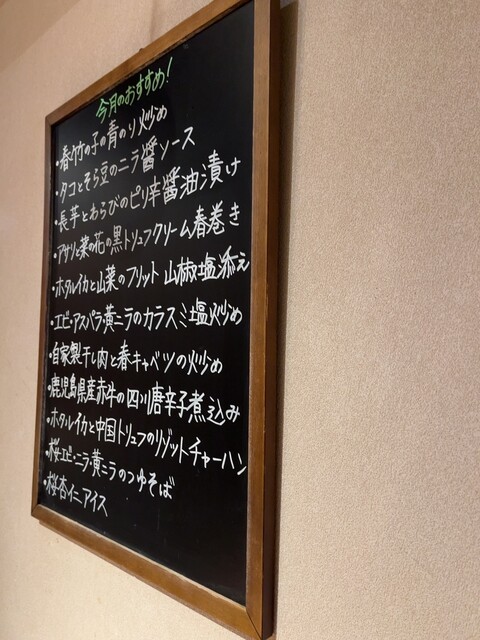 今月のおすすめ!
・春竹の子の青のり炒め
・タコとそら豆のニラ醤ソース
・長芋とわらびのピリ辛醤油漬け
・アサリと菜の花の黒トリュフクリーム春巻き
・ホタルイカと山菜のフリット 山椒塩添え
・エビ・アスパラ・黄ニラのカラスミ塩炒め
・自家製干し肉と春キャベツの炒め
・鹿児島県産赤牛の四川唐辛子煮込み
・ホタルイカと中国トリュフのリゾットチャーハン
・桜エビ・ニラ・黄ニラのつゆそば
・桜杏仁アイス